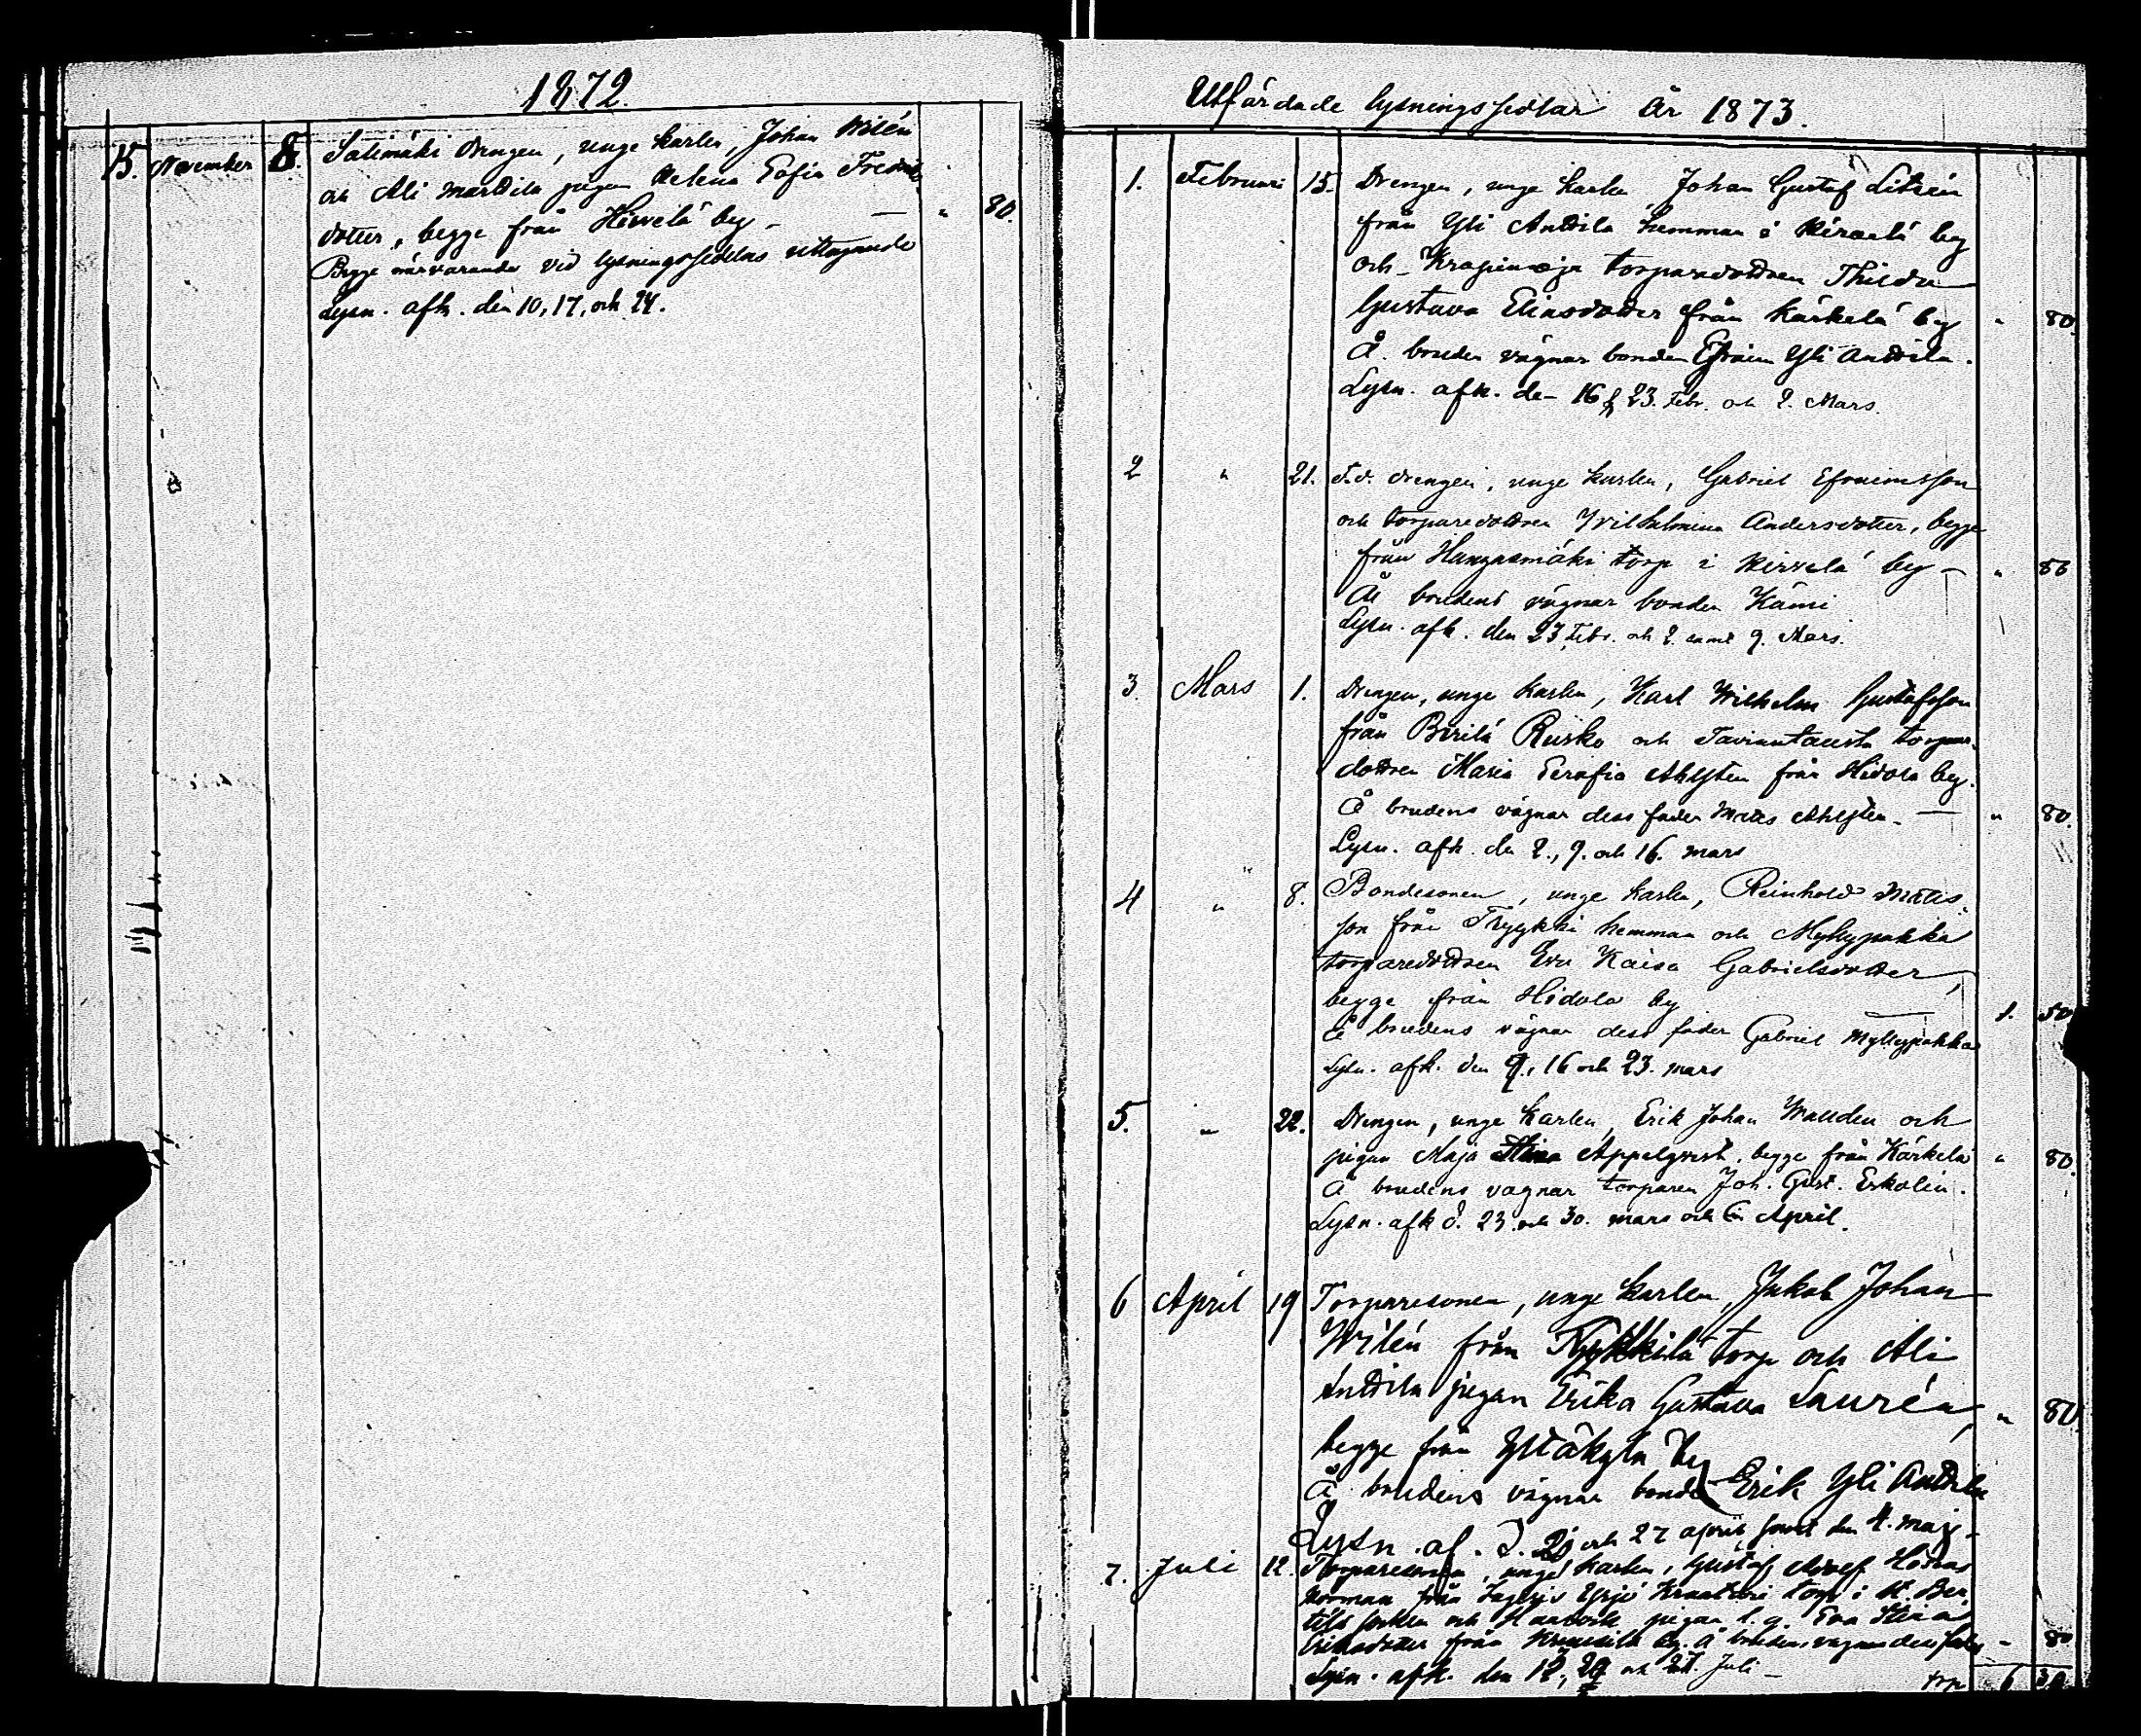 1872.
15. November 8. Salimäki drengen, unge karlen, Johan Wilén
och Ali Marttila pigan Helena Sofia Fredriks
dotter, begge från Hirvelä by — " 80.
Begge närvarande vid lysningssedelns uttagande
Lysn. afk. den 10, 17, och 24.
Utfärdade lysningssedlar År 1873.
1. Februari 15. Drengen, unge karlen Johan Gustaf
från Yli Anttila hemman i Kirvelä by
och torparedottren Thilda
Gustava Eliasdotter från Kärkelä by " 80.
Å bruden vägnar bonden Efraim Yli Anttila.
Lysn. afk. de 16, 23. Febr. och 2. Mars.
2 " 21. F.d. drengen, unge karlen, Gabriel Efraimsson
och torparedottren Wilhelmina Andersdotter, begge
från Hangasmäki torp i Kirvelä by — " 80
Å brudens vägnar bonden Kämi
Lysn. afk. den 23 Febr. och 2. samt 9. Mars.
3. Mars 1. Drengen, unge karlen, Karl Wilhelm Gustafsson
från Pirilä Rusko och torpare
dottren Maria Serafia Ahlsten från Hidola by.
Å brudens vägnar dess fader Matts Ahlsten. — " 80.
Lysn. afk. den 2., 9. och 16. mars
4 " 8. Bondesonen, unge karlen, Reinhold Matts
son från hemman och Myllypakka
torparedottren Eva Kaisa Gabrielsdotter,
begge från Hidola by — 1. 50
Å brudens vägnar dess fader Gabriel Myllypakka
Lysn. afk. den 9., 16 och 23. mars
5. " 22. Drengen, unge karlen, Erik Johan och
pigan Maja Stina Appelqvist, begge från Kärkelä " 80.
Å brudens vägnar torparen Joh. Gust. Eskolin.
Lysn. afk d. 23. och 30. mars och 6 April.
6 April 19 Torparesonen, unge karlen, Jakob Johan
Wilén från torp och Ali
Anttila pigan Erika Gustava Saurén, " 80
begge från Yltäkylä by
Å brudens vägnar bonden Erik Yli Anttila
Lysn. af. d. 20 och 27 april samt den 4. maj.
7. Juli 12. Torparesonen, unge karlen, Gustaf Adolf
från Yrjö torp i St. Ber
tils socken och pigan Eva Stina
Eriksdotter från by. Å brudens vägnar dess fader " 80
Lysn. afk. den 12, 20 och 27. Juli —
trp 6 30